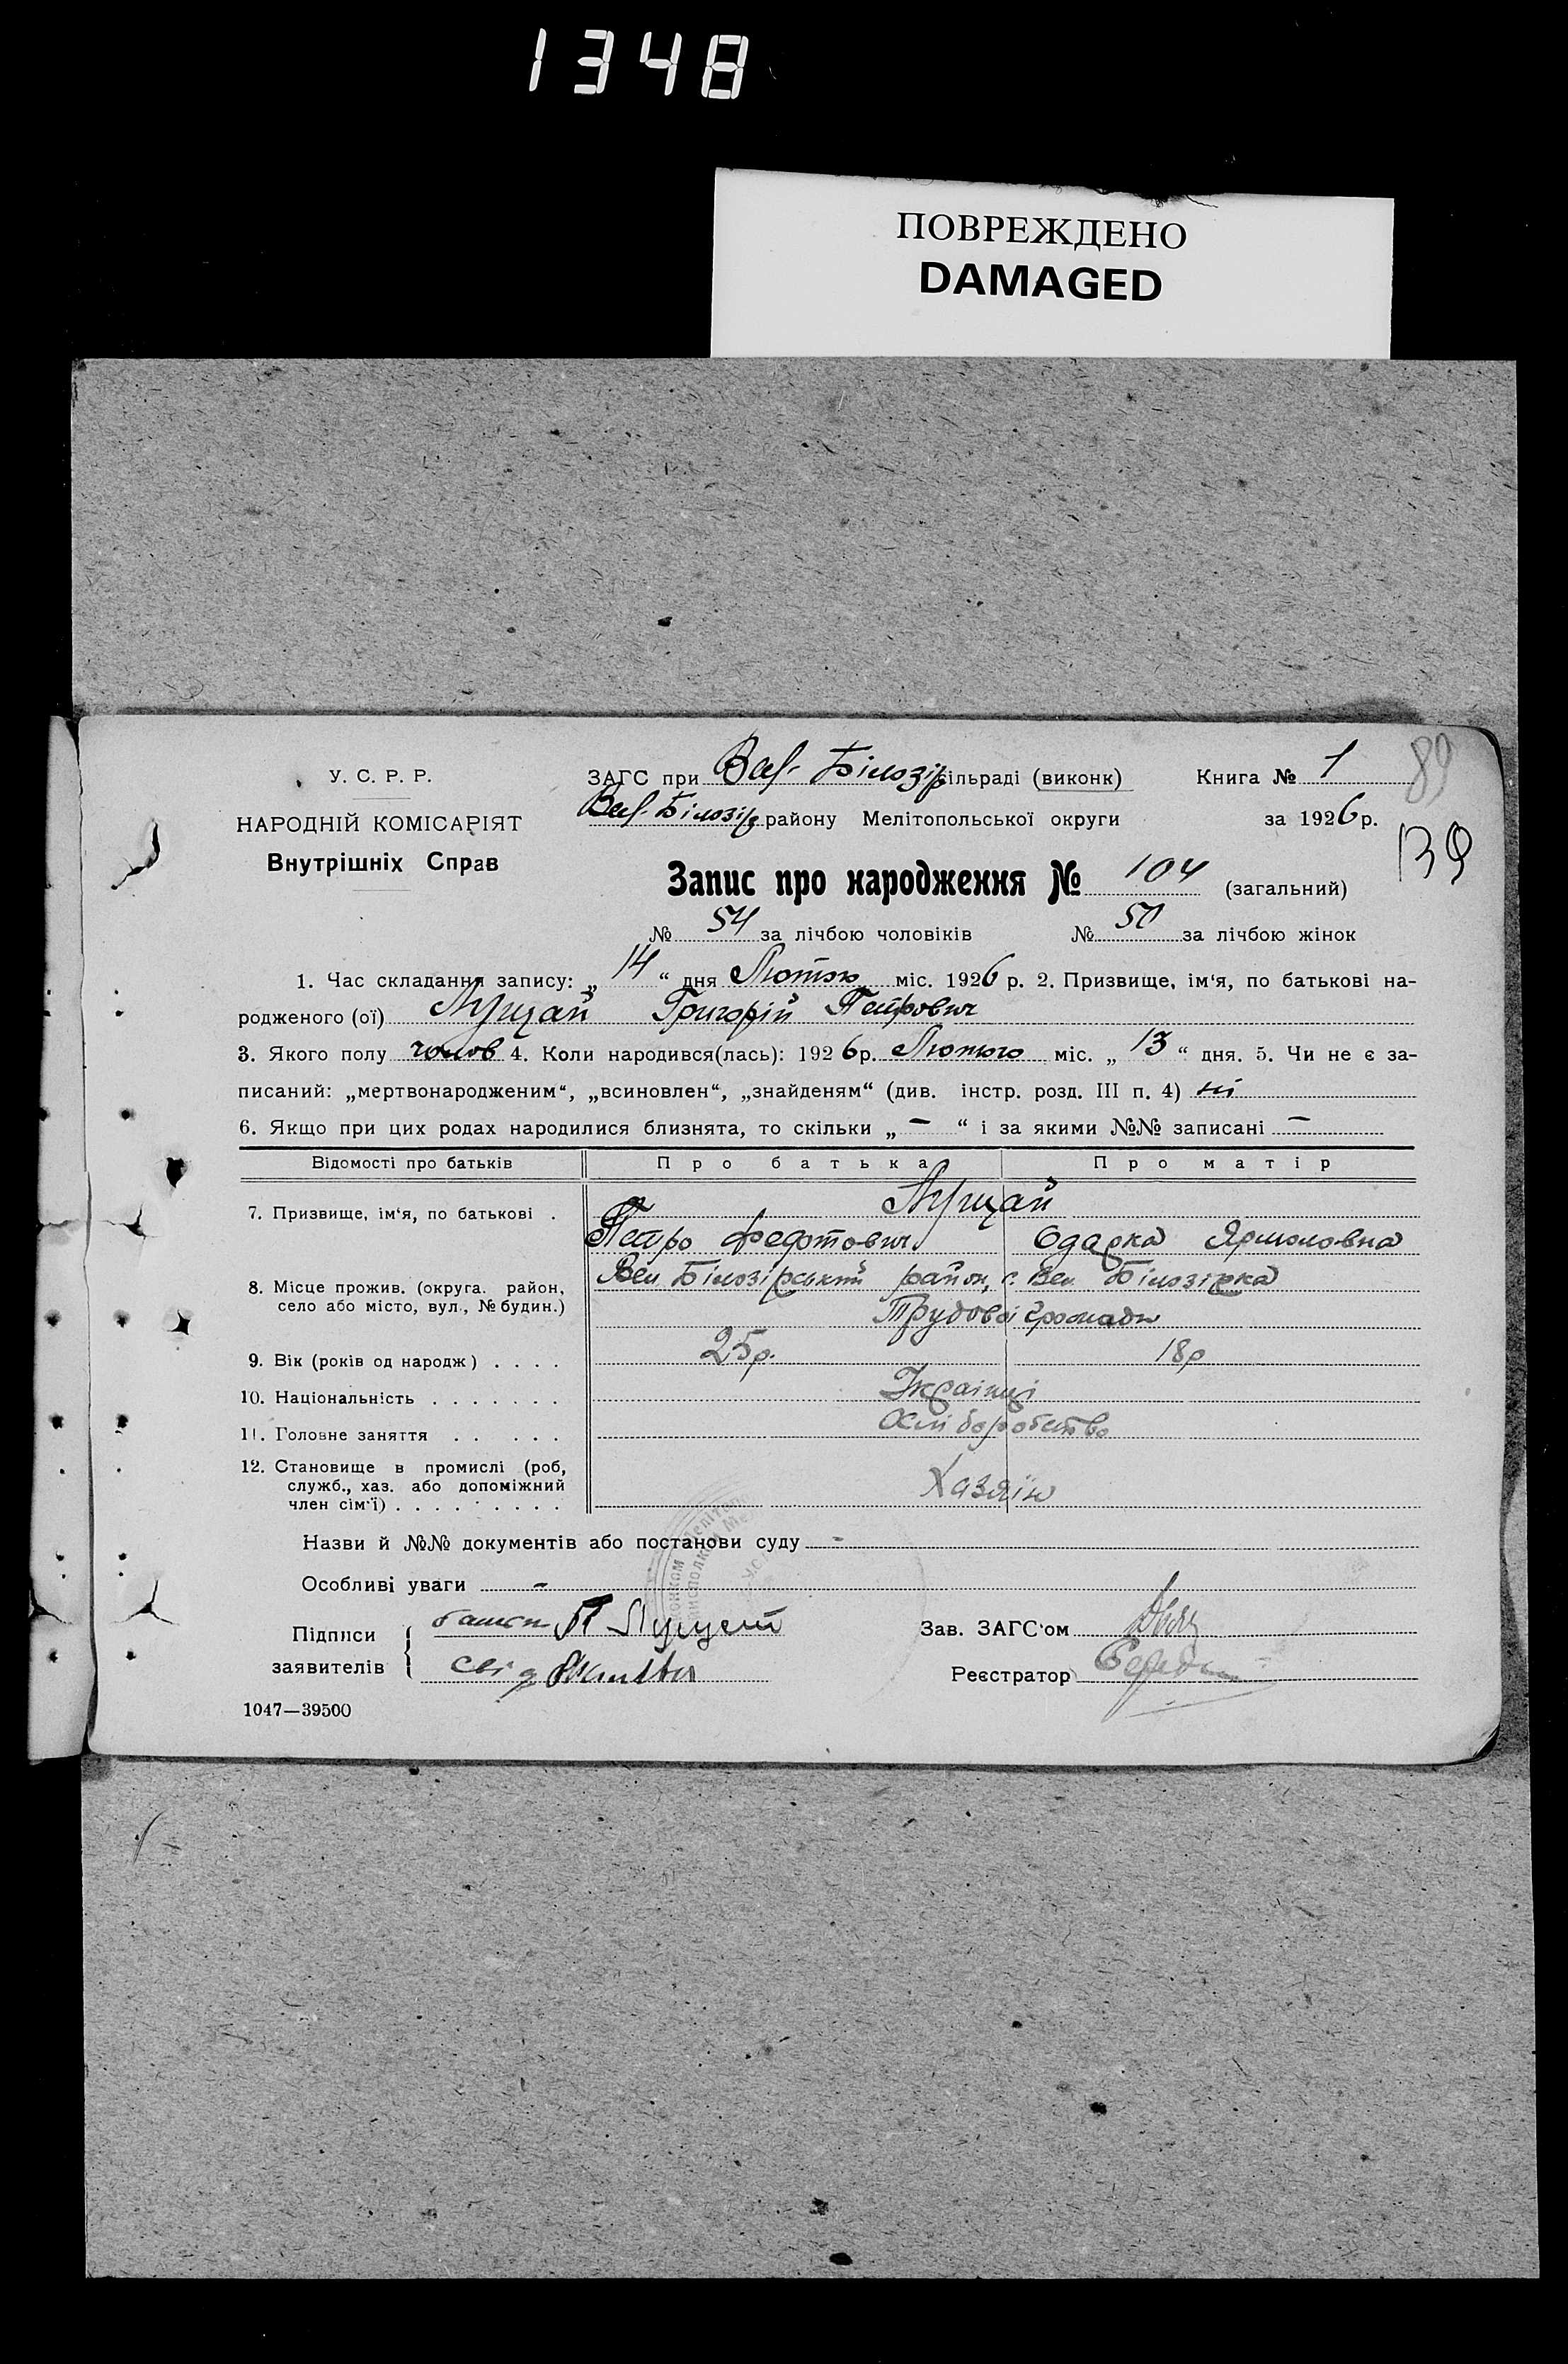 1348
ПОВРЕЖДЕНО
DAMAGED
89
139
У. С. Р. Р.
НАРОДНІЙ КОМІСАРІЯТ
Внутрішніх Справ
ЗАГС при Вел- Білозір сільраді (виконк) Книга № 1
Вел-Білозір району Мелітопольської округи за 1926 р.
Запис про народження № 104 (загальний)
№ 54 за лічбою чоловіків № 50 за лічбою жінок
1. Час складання запису: „ 14 “ дня Лютого міс. 1926 р. 2. Призвище, ім‘я, по батькові на-
родженого (ої) Лущай Григорій Петрович
3. Якого полу чолов 4. Коли народився(лась): 1926 р. Лютого міс. „ 13 “ дня. 5. Чи не є за-
писаний: „мертвонародженим“, „всиновлен“, „знайденям“ (див. інстр. розд. III п. 4) ні
6. Якщо при цих родах народилися близнята, то скільки „ — “ і за якими №№ записані —
Відомості про батьків Про батька Про матір
7. Призвище, ім‘я, по батькові . Лущай
Петро Федотович Одарка Ярмоловна
8. Місце прожив. (округа. район, село або місто, вул., № будин.) Вел Білозірський район, с. Вел Білозірка
Трудової громади
9. Вік (років од народж) . . . . 25р. 18р
10. Національність . . . . . . . Українці
11. Головне заняття . . . . . Хліборобство
12. Становище в промислі (роб,
служб., хаз. або допоміжний
член сім‘ї) . . . . . . . . . Хазяїн
Назви й №№ документів або постанови суду -
Особливі уваги -
Підписи заявителів П Лущай
свід
Зав. ЗАГС‘ом
Реєстратор
1047—39500